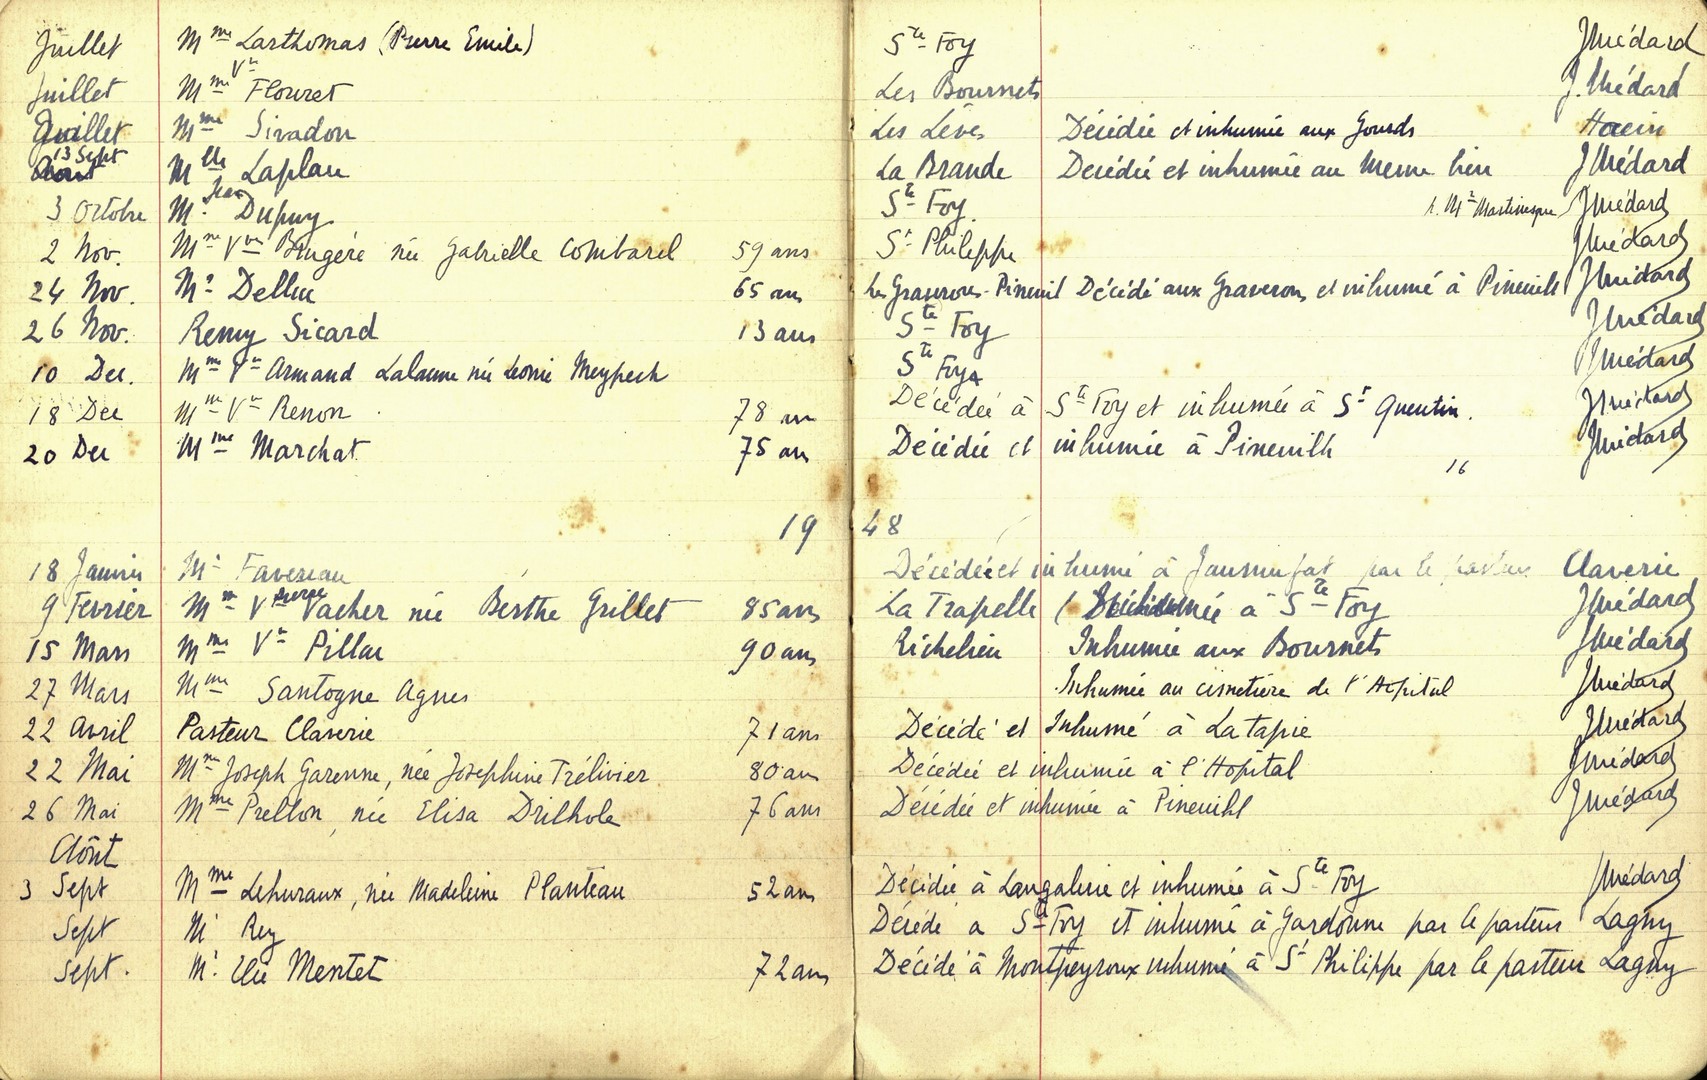 Juillet Mme Larthomas (Pierre Emile) Ste Foy JMédard
Juillet Mme Vve Flouret Les Bournets J. Médard
Juillet Mme Sivadon Les Lèves Décédée et inhumée aux Gourds
13 Sept Mlle Laplau La Brande Decédé et inhumée au meme lieu JMédard
3 Octobre Mr. Jean Dupuy Ste Foy. JMédard
2 Nov. Mme Vve Brugére née Gabrielle Combarel 59 ans St Philippe JMédard
24 Nov. Mr Delluc 65 ans Les Graverons - Pineuil Décédé aux Graverons et inhumé à Pineuilh JMédard
26 Nov. Remy Sicard 13 ans Ste Foy JMédard
10 Dec. Mme Vve Armand Lalanne née Leonie Meyfrech Ste Foy JMédard
18 Dec Mme Vve Renon 78 an Décédée à Ste Foy et inhumée à St Quentin. JMédard
20 Dec Mme Marchat 75 ans Décédée et inhumée à Pineuilh JMédard
16
1948
18 Janvier Mr Favereau Décédé et inhumé à par le pasteur Claverie
9 Fevrier Mme Vve Pierre Vacher née Berthe Grillet 85 ans La Trapelle ( à Ste Foy JMédard
15 Mars Mme Vve Pillac 90 ans Richelieu Inhumée aux Bournets JMédard
27 Mars Mme Santogne Agnes Inhumée au cimetière de l'Hopital JMédard
22 Avril Pasteur Claverie 71 ans Décédé et Inhumé à La tapie JMédard
22 Mai Mme Joseph Garenne, née Joséphine Trélivier 80 ans Décédée et inhumée à l'Hopital JMédard
26 Mai Mme Prellon, née Elisa Drilhole 76 ans Décédée et inhumée à Pineuihl JMédard
Aôut
3 Sept Mme Lehuraux, née Madeleine Planteau 52 ans Décédée à Langalerie et inhumée à Ste Foy JMédard
Sept Mr Rey Décédé a Ste Foy et inhumé à Gardonne par le pasteur Lagny
Sept. Mr. Elie Mentet 72 ans Décédé à Montpeyroux inhumé à St Philippe par le pasteur Lagny